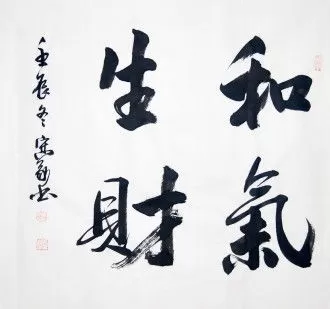 和氣
生財
壬辰冬